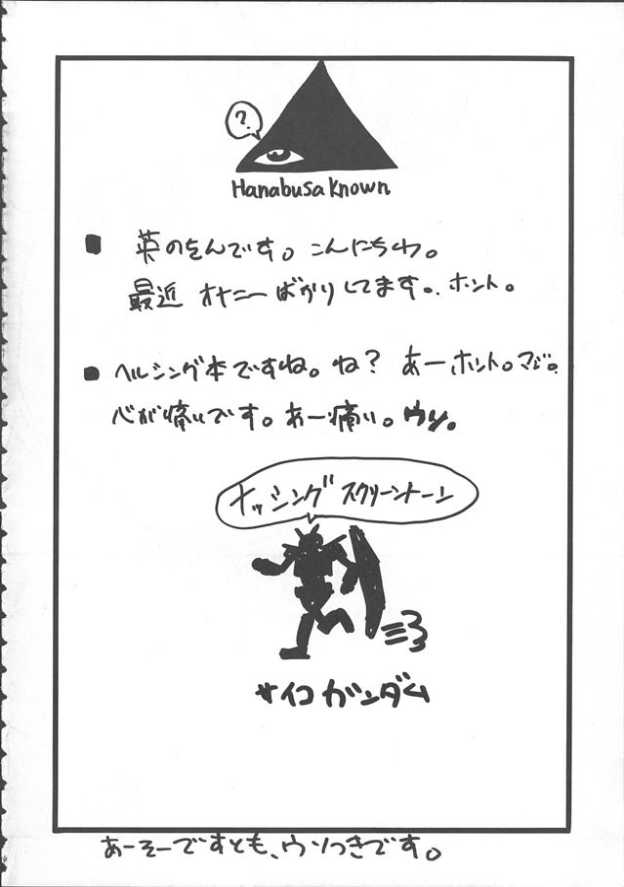 ?
Hanabusa Known
■ 英のをんです。こんにちわ。
最近 オナニーばかりしてます。ホント。
■ ヘルシング本ですね。ね？ あーホント。マジ。
心が痛いです。あー痛い。ウソ。
ナッシング スクリーントーン
サイコ ガンダム
あーそーですとも、ウソつきです。